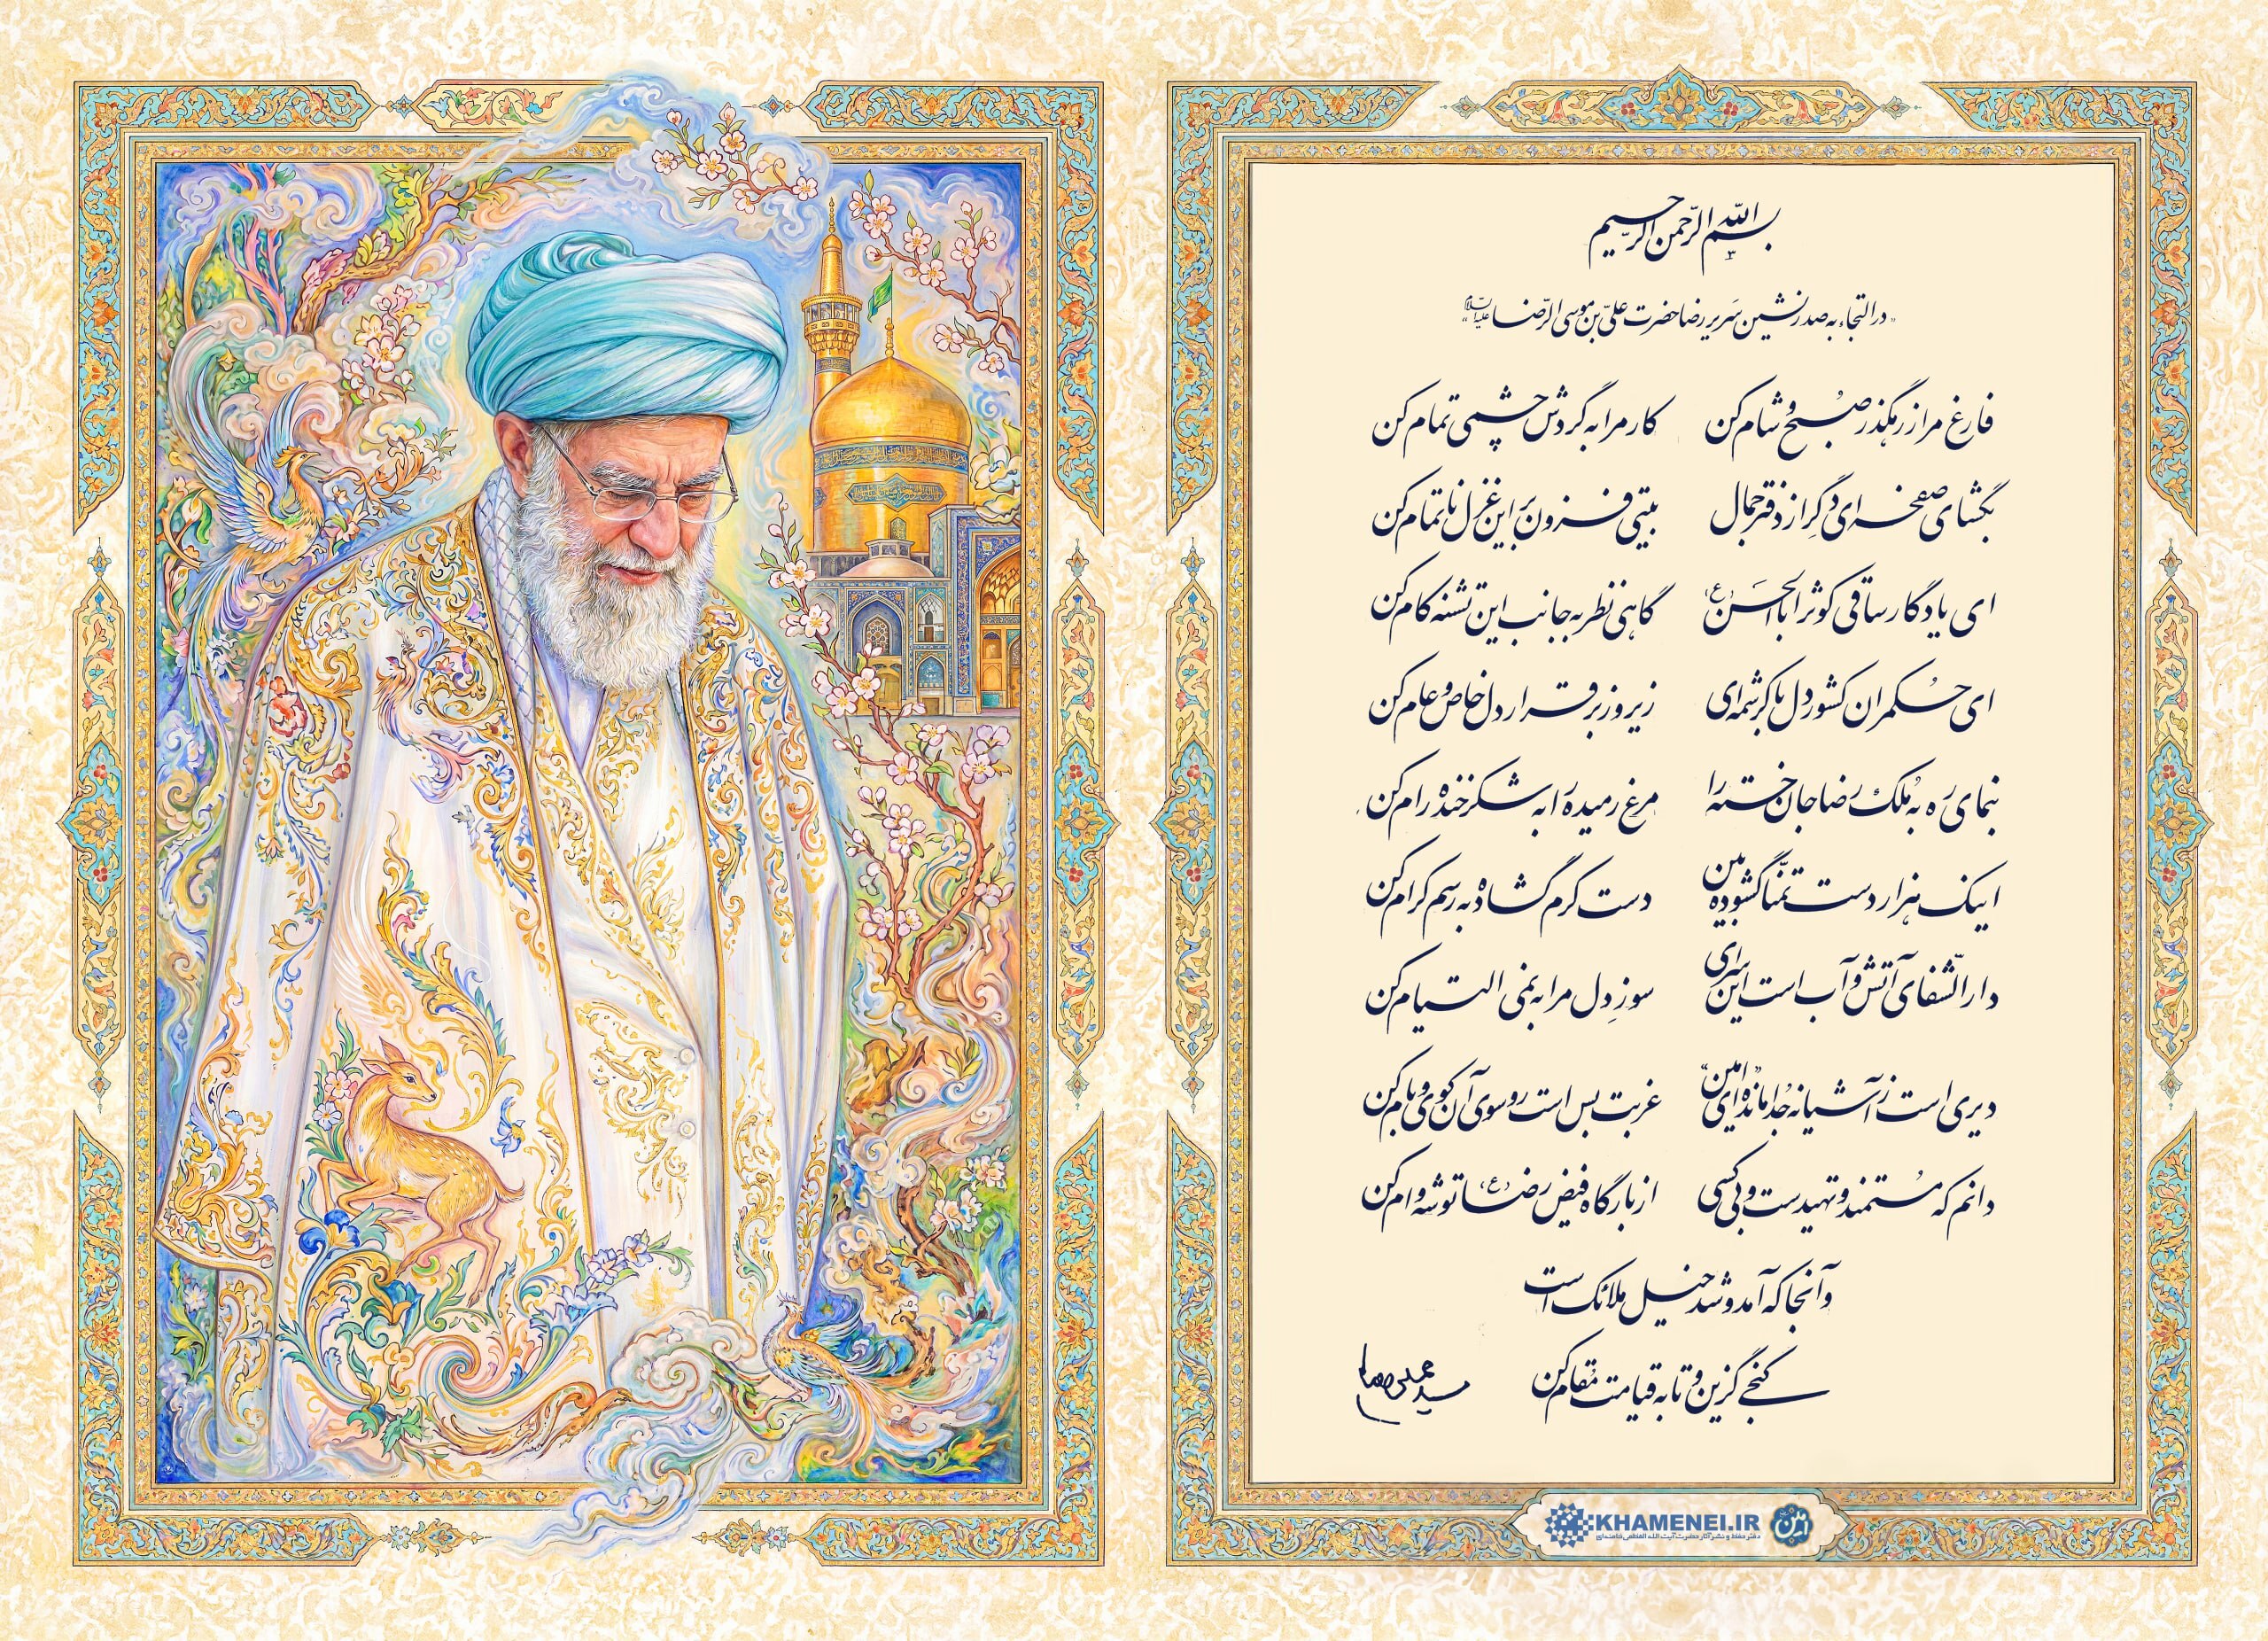 بسم الله الرّحمن الرّحیم
«در التجاء به صدرنشین سَریر رضا حضرت علیّ بن موسی الرّضا علیه‌السّلام»
فارغ مرا ز رهگذر صبح و شام کن کار مرا به گردش چشمی تمام کن
بگشای صفحه‌ای دگر از دفتر جمال بیتی فزون بر این غزل ناتمام کن
ای یادگار ساقی کوثر اباالحسن(ع) گاهی نظر به جانب این تشنه کام کن
ای حکمران کشور دل با کرشمه‌ای زیر و زبر قرار دل خاص و عام کن
بنمای ره به مُلک رضا جان خسته را مرغ رمیده را به شکرخنده رام کن
اینک هزار دست تمنّا گشوده بین دست کرم گشاده به رسم کرام کن
دارالشّفای آتش و آب است این سرای سوزِ دل مرا به نمی التیام کن
دیری است ز آشیانه جدا مانده‌ای "امین" غربت بس است رو سوی آن کوی و بام کن
دانم که مُستمند و تهیدست و بی‌کسی از بارگاه فیض رضا(ع) توشه وام کن
وآنجا که آمد و شد خیل ملائک است
کنجی گزین و تا به قیامت مُقام کن
KHAMENEI.IR
دفتر حفظ و نشر آثار حضرت آیت الله العظمی خامنه‌ای